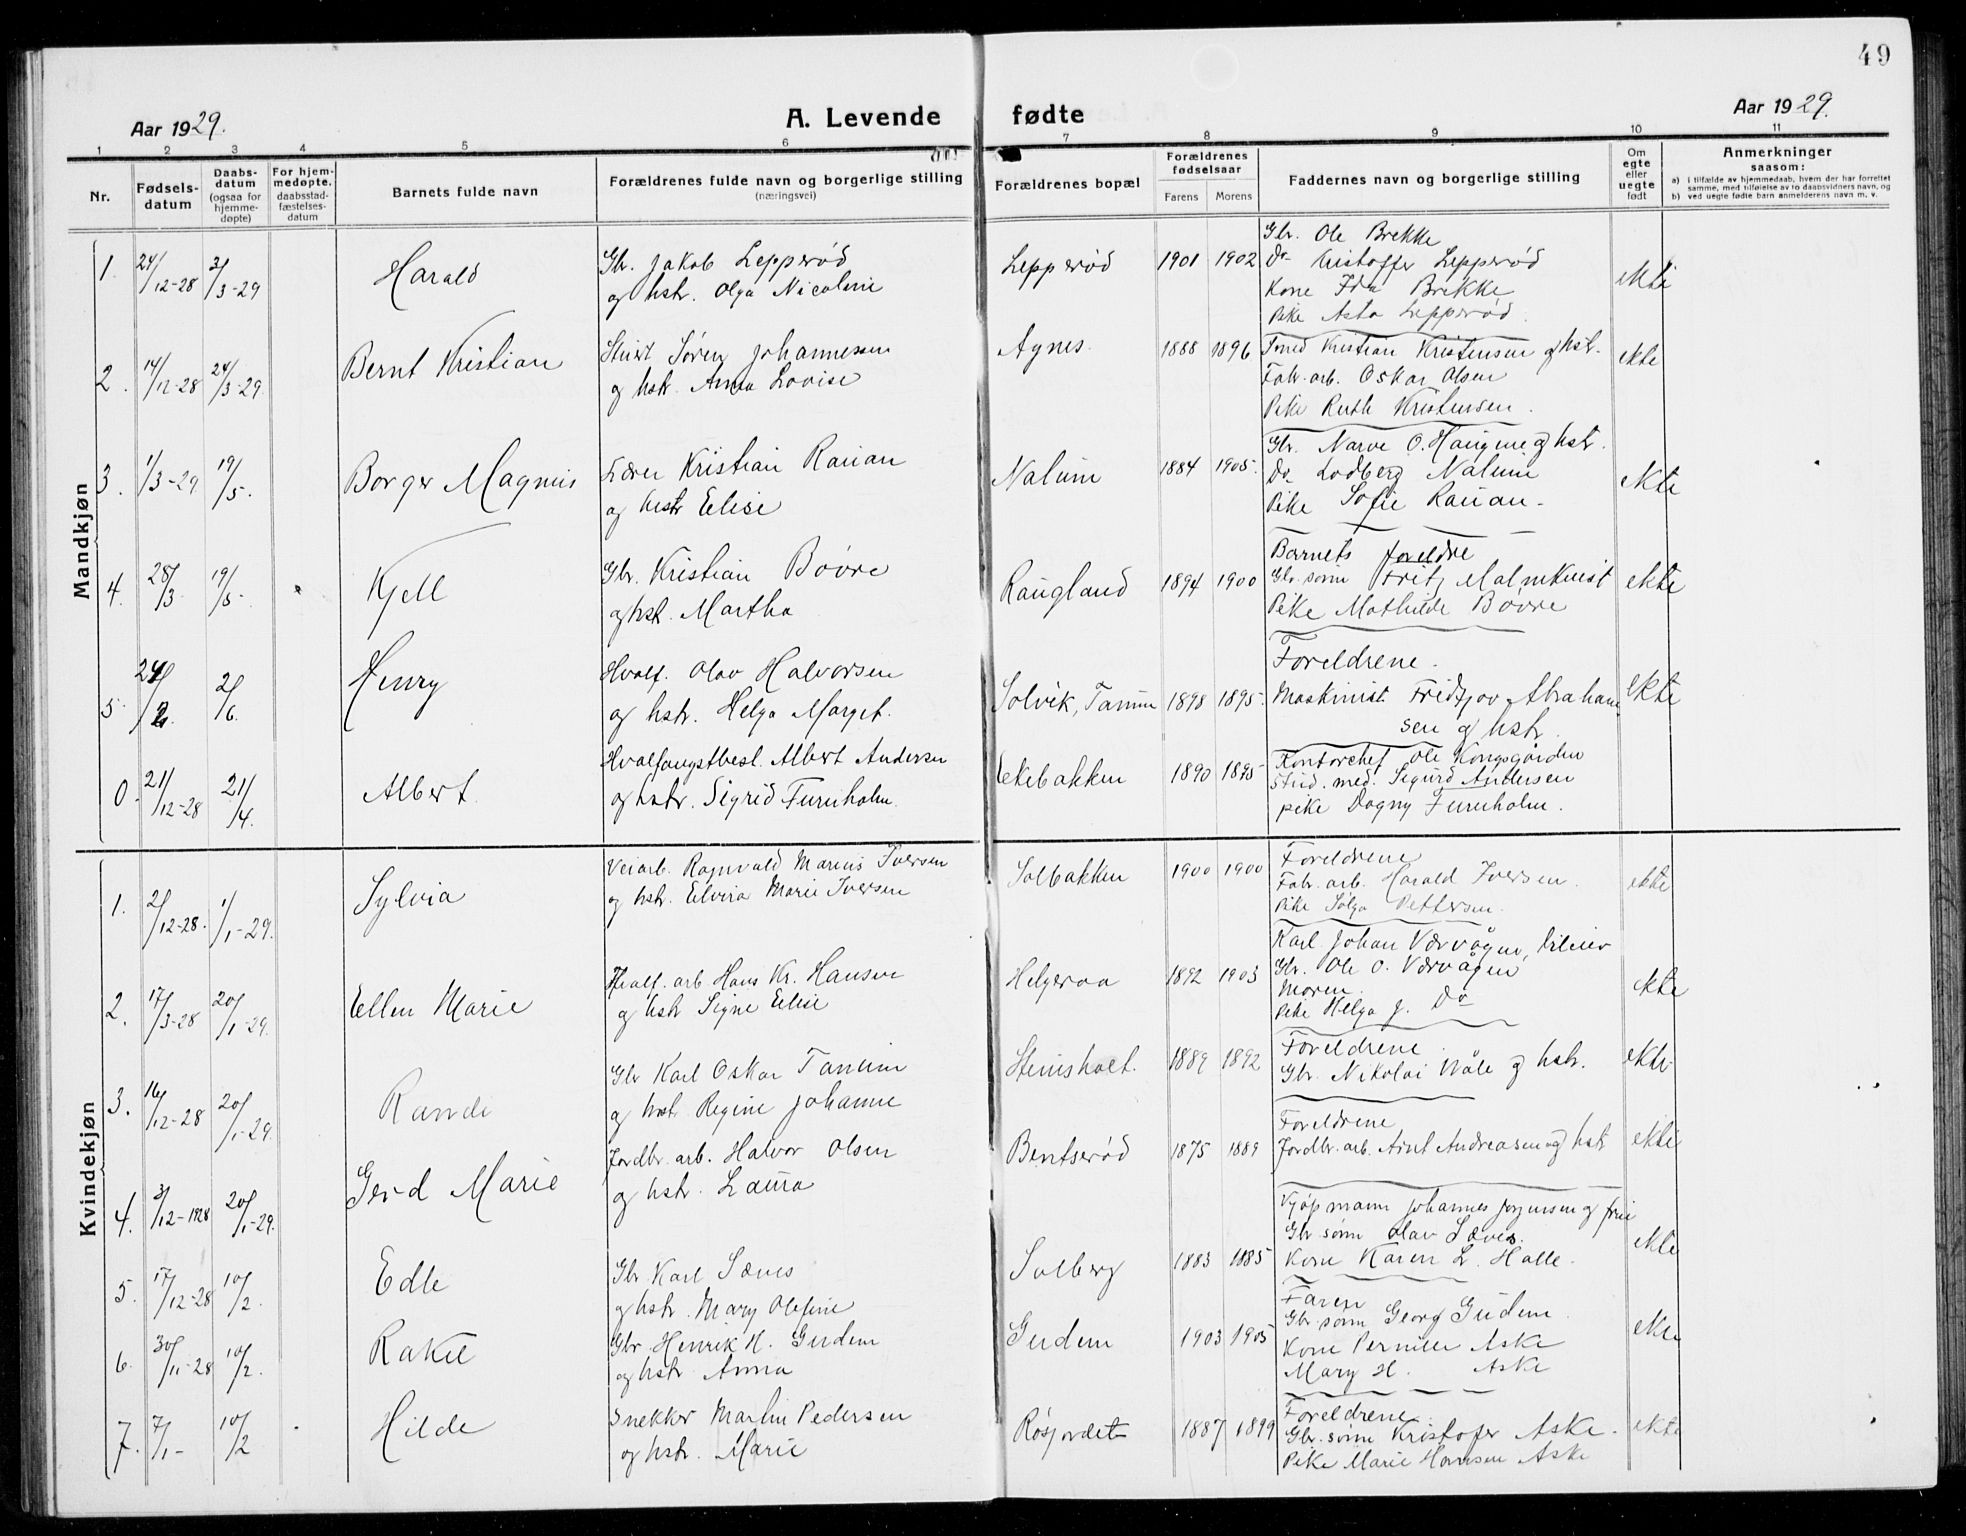 49
Aar 1929.
A. Levende fødte
Aar 1929.
1 2 3 4 5 6 7 8 9 10 11
Nr.
Fødsels-datum
Daabs-datum (ogsaa for hjemme-døpte)
For hjem-medøpte. daabsstad-fæstelses-datum
Barnets fulde navn
Forældrenes fulde navn og borgerlige stilling (næringsvei)
Forældrenes bopæl
Forældrenes fødselsaar
Farens Morens
Faddernes navn og borgerlige stilling
Om egte eller uegte født
Anmerkninger saasom:
a) i tilfælde av hjemmedaab, hvem der har forrettet samme, med tilføielse av to daabsvidners navn, og
b) ved uegte fødte barn anmelderens navn m. v.
Mandkjøn
1. 24/12-28 3/3-29 Harald
Gbr. Jakob Lepperød
og hstr. Olga Nicoline
Lepperød 1901 1902
Gbr. Ole Brekke
Do Kristoffer Lepperød
Kone Ida Brekke
Pike Asta Lepperød.
ekte
2. 14/12-28 24/3-29 Bernt Kristian
Søren Johannessen
og hstr. Anna Lovise
Agnes. 1888 1896
Kristian Kristensen og hstr.
Fabr. arb. Oskar Olsen
Pike Ruth Kristensen.
ekte
3. 1/3-29 19/5. Borger Magnus
Lærer Kristian Rauan
og hstr Elise
Nalum 1884 1905.
Gbr. Narve O. Haugene og hstr.
Do Lodberg Nalum
Pike Sofie Rauan
ekte
4. 28/3 19/5 Kjell
Gbr. Kristian Bøvre
og hstr. Martha
Raugland 1894 1900
Barnets foreldre
Gbr. sønn Fritz Malmkvist
Pike Mathilde Bøvre
ekte
5 24/2. 2/6. Henry
Hvalf. Olav Halvorsen
og hstr. Helga Marget.
Solvik, Tanum 1898 1895.
Foreldrene.
Maskinist Fridtjov Abraham
sen og hstr.
ekte
0. 21/12-28 21/4. Albert
Hvalfangstbest. Albert Andersen
og hstr. Sigrid Furuholm.
Ekebakken 1890 1895
Kontorchef Ole Kongsgården
Stud. med. Sigurd Andersen
pike Dagny Furuholm.
Kvindekjøn
1. 2/12-28. 1/1-29. Sylvia
Veiarb. Ragnvald Marius Iversen
og hstr. Elvira Marie Iversen
Solbakken 1900 1900
Foreldrene
Fabr. arb. Harald Iversen.
Pike Solga Pettersen.
ekte
2. 17/3-28 20/1-29. Ellen Marie
Hvalf. arb Hans Kr. Hansen
og hstr Signe Elise
Helgeroa 1892 1903
Karl Johan Værvågen,
Gbr. Ole O. Værvågen
Moren.
Pike Helga J. Do
ekte
3. 16/12-28 20/1-29. Randi
Gbr Karl Oskar Tanum
og hstr Regine Johanne
Steinsholt. 1889 1892
Foreldrene.
Gbr. Nikolai Våle og hstr.
ekte
4. 3/12-1928 20/1-29. Gerd Marie
Jordbr. arb. Halvor Olsen
og hstr. Laura
Bentserød 1875 1889
Foreldrene
Jordbr. arb. Arnt Andreasen og hstr
ekte
5. 17/12-28 10/2. Edle
Gbr. Karl Sævis
og hstr. Mary Olefine
Solberg 1883 1885
Kjøpmann Johannes Jørgensen og frue
Gbr sønn Olav Sævis.
Kone Karen L. Halle.
ekte
6. 30/11-28 10/2. Rakel
Gbr. Henrik H. Gudem
og hstr Anna
Gudem 1903 1905
Faren
Gbr. sønn Georg Gudem.
Kone Pernille Aske
Mary H. Aske
ekte
7. 7/1- 10/2 Hilde
Snekker Martin Pedersen
og hstr. Marie
Røsjordet 1887 1899
Foreldrene.
Gbr. sønn Kristofer Aske.
Pike Marie Hansen Aske
ekte